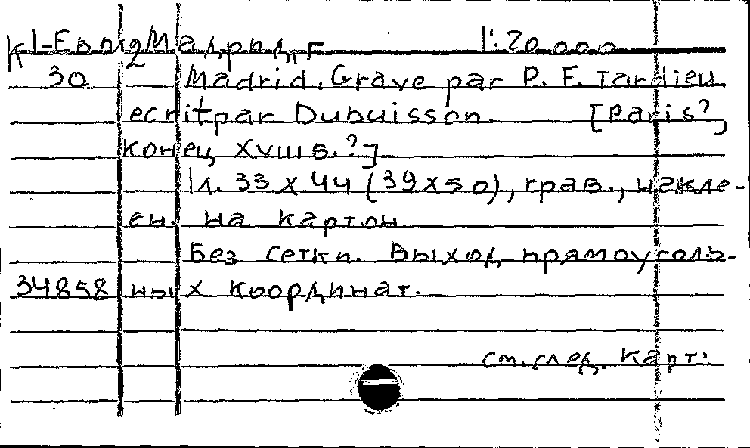 К1-Евр 2 Мадрид, г. 1:20.000
30 Madrid. Grave par P. F. Tardieu
ecrit par Dubuisson. [Paris?,
конец XVIII в.?]
1 л. 33 x 44 (39 x 50), грав., накле-
ен. на картон.
Без сетки. Выход прямоуголь-
34858 ных координат.
см. след. карт.